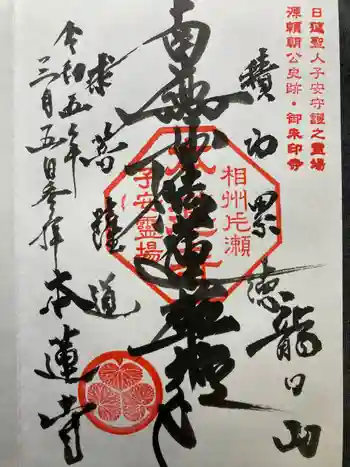 日蓮聖人子安守護之霊場
源頼朝公史跡・御朱印寺
積功累徳
龍口山
相州片瀬
子安霊場
南無妙法蓮華経
求菩薩道
令和五年
三月五日参拝
本蓮寺